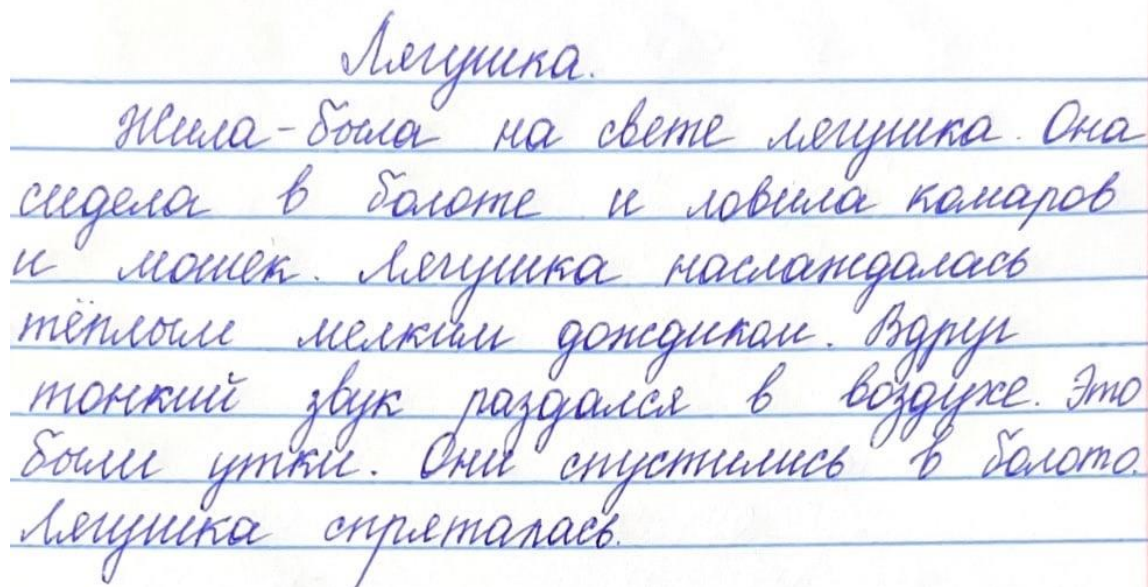 Лягушка.
Жила-была на свете лягушка. Она
сидела в болоте и ловила комаров
и мошек. Лягушка наслаждалась
тёплым мелким дождиком. Вдруг
тонкий звук раздался в воздухе. Это
были утки. Они спустились в болото.
Лягушка спряталась.